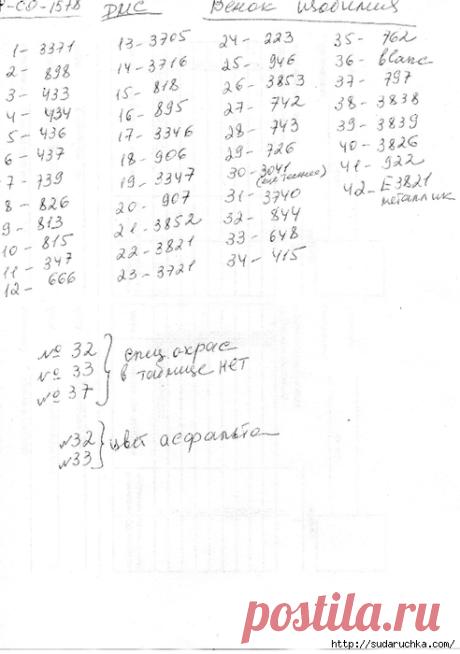 -СО-1578 ДМС Венок изобилия
1 - 3371
2 - 898
3 - 433
4 - 434
5 - 436
6 - 437
7 - 739
8 - 826
9 - 813
10 - 815
11 - 347
12 - 666
13 - 3705
14 - 3716
15 - 818
16 - 895
17 - 3346
18 - 906
19 - 3347
20 - 907
21 - 3852
22 - 3821
23 - 3721
24 - 223
25 - 946
26 - 3853
27 - 742
28 - 743
29 - 726
30 - 3041
31 - 3740
32 - 844
33 - 648
34 - 415
35 - 762
36 - blanc
37 - 797
38 - 3838
39 - 3839
40 - 3826
41 - 922
42 - E3821
металлик
№ 32
№ 33
№ 37
спец окрас
в таблице нет
№32
№33
цвет асфальта
postila.ru
http://sudaruchka.com/